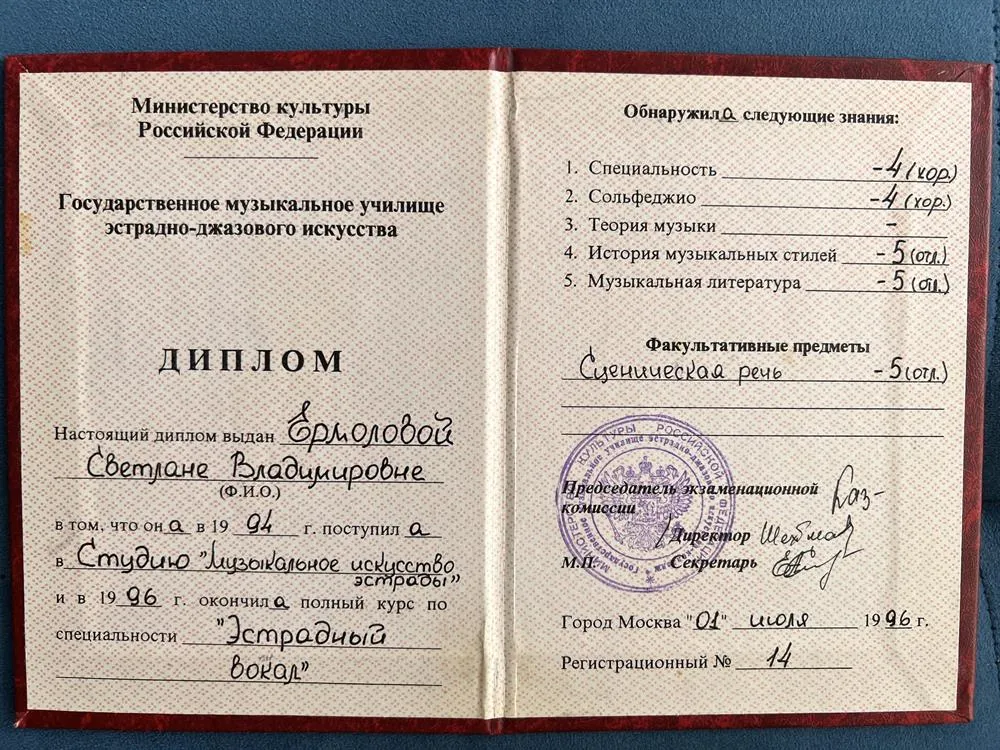 Министерство культуры
Российской Федерации
Государственное музыкальное училище
эстрадно-джазового искусства
ДИПЛОМ
Настоящий диплом выдан Ермоловой
Светлане Владимировне
(Ф.И.О.)
в том, что он а в 19 94 г. поступил а
в Студию "Музыкальное искусство
эстрады"
и в 19 96 г. окончил а полный курс по
специальности "Эстрадный
вокал"
Обнаружила следующие знания:
1. Специальность -4 (хор.)
2. Сольфеджио -4 (хор.)
3. Теория музыки -
4. История музыкальных стилей -5 (отл.)
5. Музыкальная литература -5 (отл.)
Факультативные предметы
Сценическая речь -5 (отл.)
Председатель экзаменационной
комиссии
Директор
М.П. Секретарь
Город Москва "01" июля 1996 г.
Регистрационный № 14